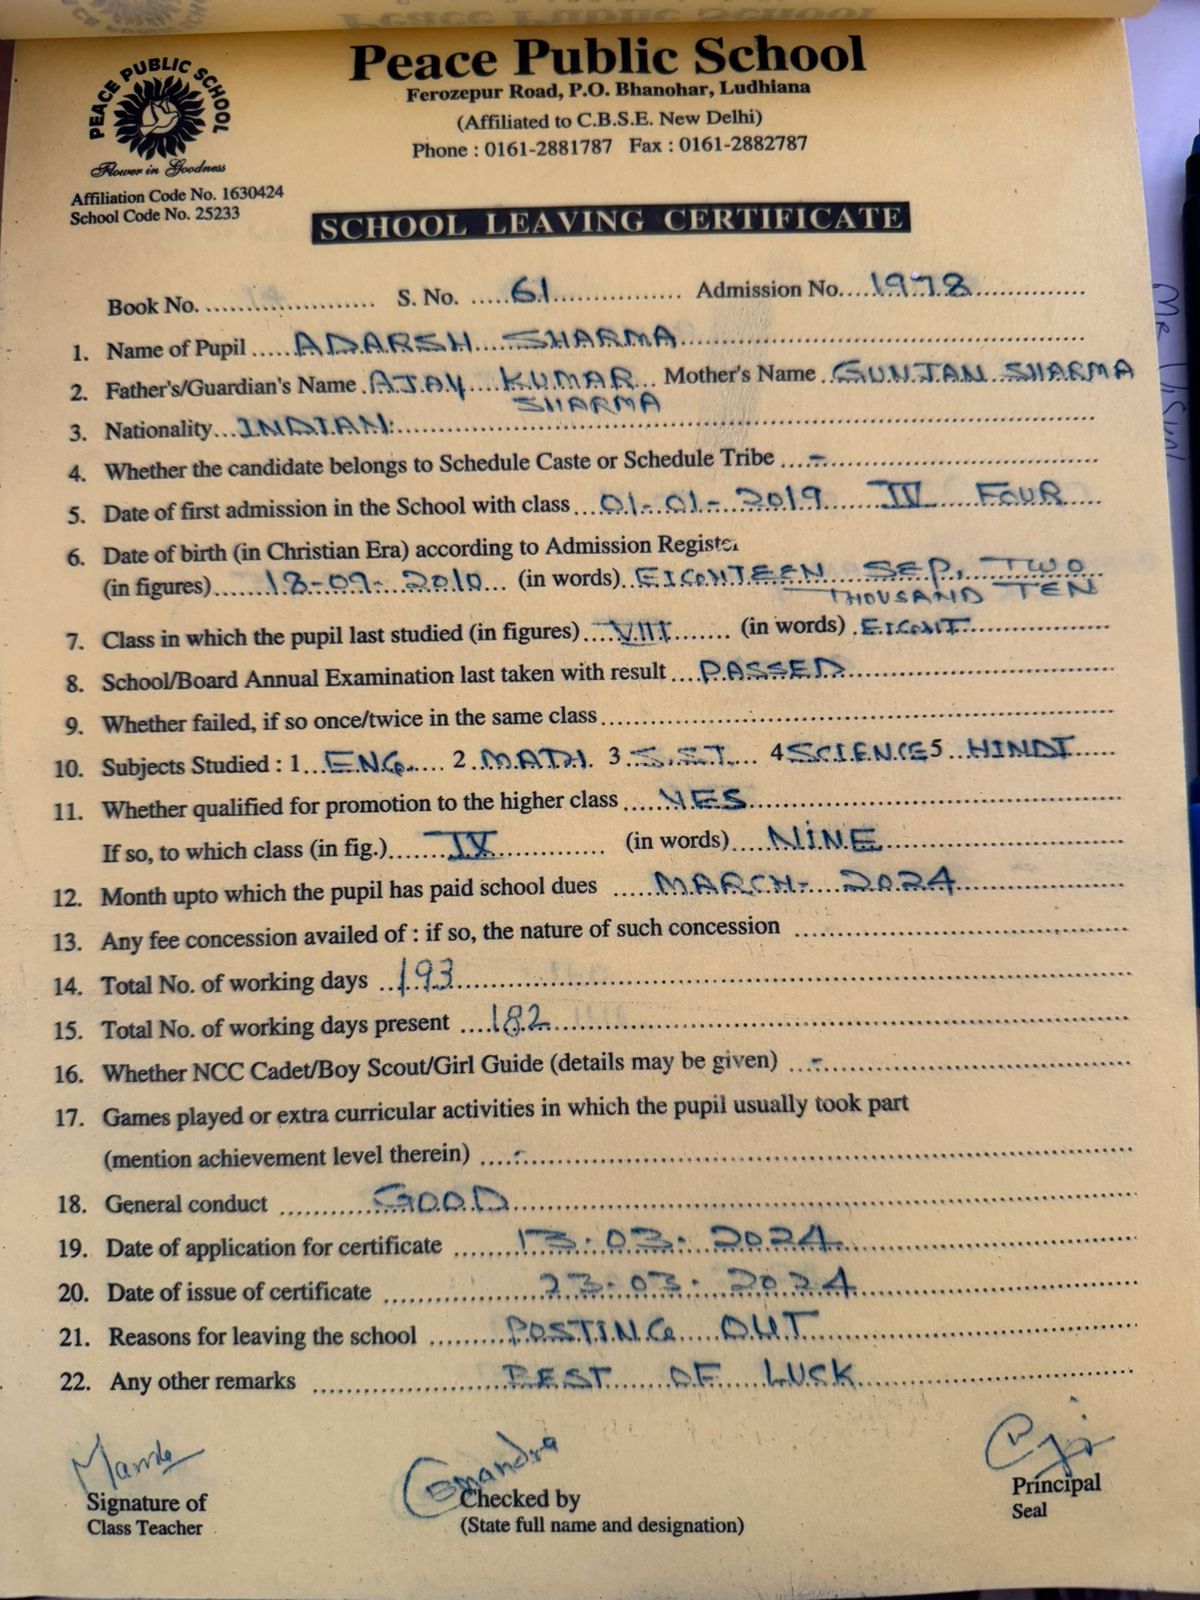 Peace Public School
PEACE PUBLIC SCHOOL
Flower in Goodness
Ferozepur Road, P.O. Bhanohar, Ludhiana
(Affiliated to C.B.S.E. New Delhi)
Phone : 0161-2881787 Fax : 0161-2882787
Affiliation Code No. 1630424
School Code No. 25233
SCHOOL LEAVING CERTIFICATE
Book No. .................... S. No. 61 Admission No. 1978
1. Name of Pupil ADARSH SHARMA
2. Father's/Guardian's Name AJAY KUMAR SHARMA Mother's Name GUNJAN SHARMA
3. Nationality INDIAN
4. Whether the candidate belongs to Schedule Caste or Schedule Tribe -
5. Date of first admission in the School with class 01-01-2019 IV FOUR
6. Date of birth (in Christian Era) according to Admission Register
(in figures) 18-09-2010 (in words) EIGHTEEN SEP, TWO THOUSAND TEN
7. Class in which the pupil last studied (in figures) VIII (in words) EIGHT
8. School/Board Annual Examination last taken with result PASSED
9. Whether failed, if so once/twice in the same class
10. Subjects Studied : 1 ENG. 2 MATH. 3 S.ST. 4 SCIENCE 5 HINDI
11. Whether qualified for promotion to the higher class YES
If so, to which class (in fig.) IX (in words) NINE
12. Month upto which the pupil has paid school dues MARCH- 2024
13. Any fee concession availed of : if so, the nature of such concession
14. Total No. of working days 193
15. Total No. of working days present 182
16. Whether NCC Cadet/Boy Scout/Girl Guide (details may be given) -
17. Games played or extra curricular activities in which the pupil usually took part
(mention achievement level therein) -
18. General conduct GOOD
19. Date of application for certificate 13.03.2024
20. Date of issue of certificate 23.03.2024
21. Reasons for leaving the school POSTING OUT
22. Any other remarks BEST OF LUCK
Signature of
Class Teacher
Checked by
(State full name and designation)
Principal
Seal